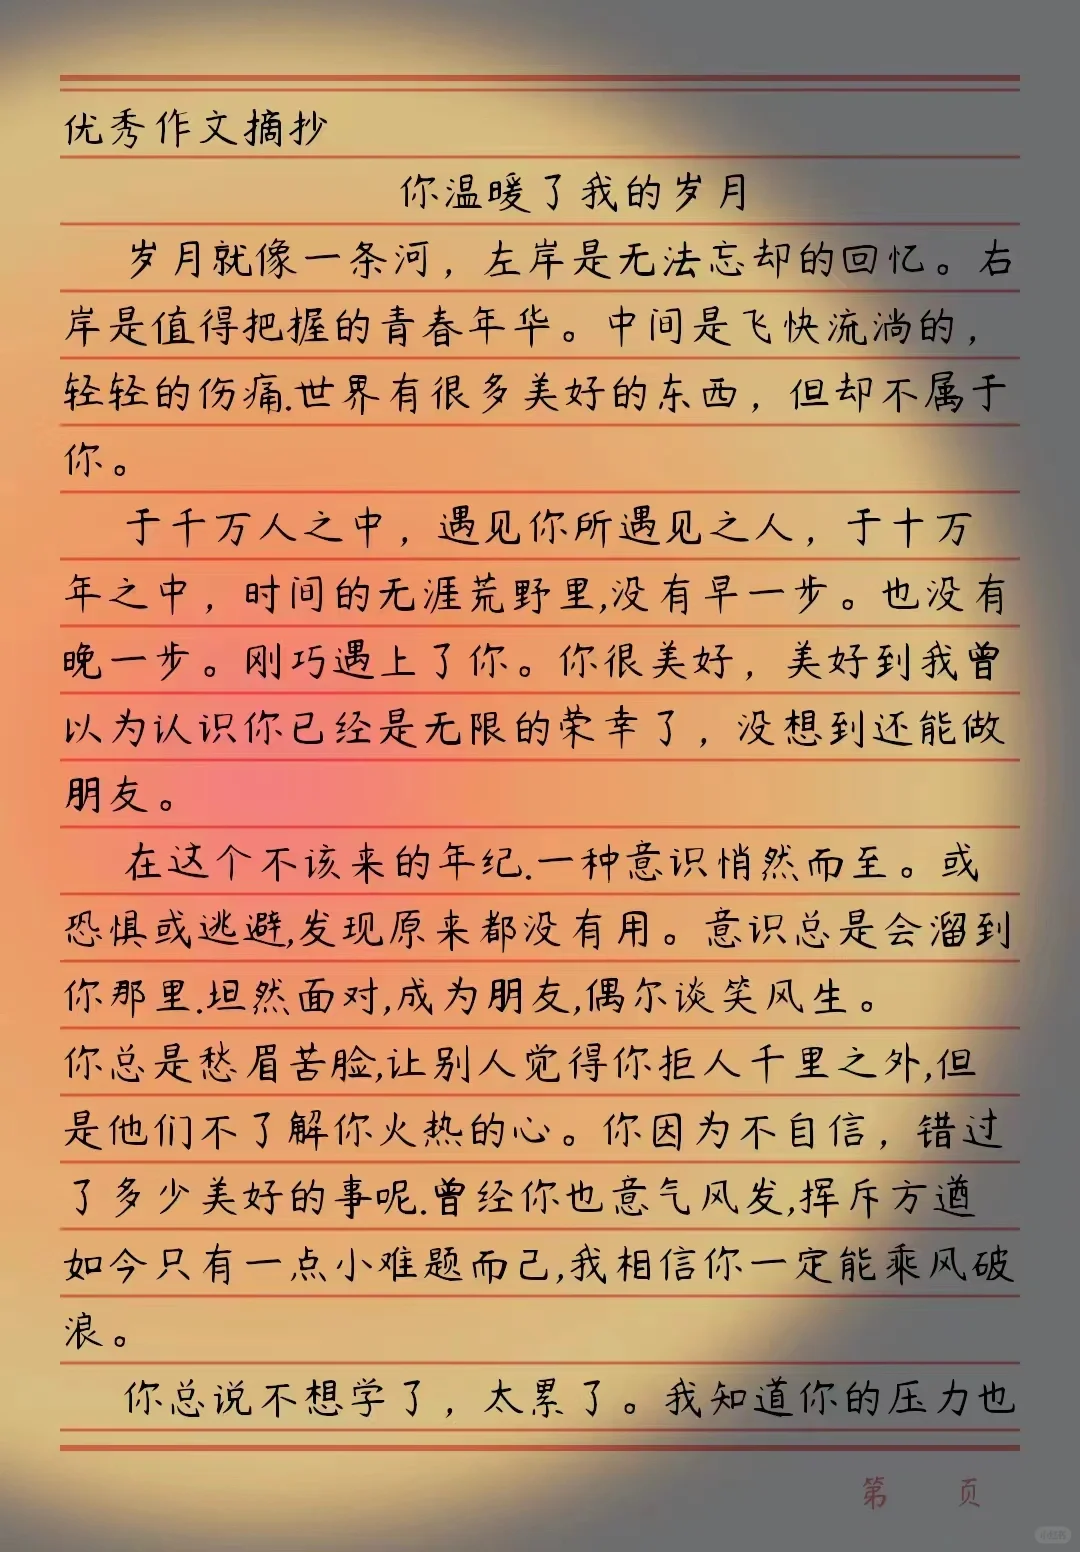 优秀作文摘抄
你温暖了我的岁月
岁月就像一条河，左岸是无法忘却的回忆。右
岸是值得把握的青春年华。中间是飞快流淌的，
轻轻的伤痛.世界有很多美好的东西，但却不属于
你。
于千万人之中，遇见你所遇见之人，于十万
年之中，时间的无涯荒野里,没有早一步。也没有
晚一步。刚巧遇上了你。你很美好，美好到我曾
以为认识你已经是无限的荣幸了，没想到还能做
朋友。
在这个不该来的年纪.一种意识悄然而至。或
恐惧或逃避,发现原来都没有用。意识总是会溜到
你那里.坦然面对,成为朋友,偶尔谈笑风生。
你总是愁眉苦脸,让别人觉得你拒人千里之外,但
是他们不了解你火热的心。你因为不自信，错过
了多少美好的事呢.曾经你也意气风发,挥斥方遒
如今只有一点小难题而己,我相信你一定能乘风破
浪。
你总说不想学了，太累了。我知道你的压力也
第 页
小红书